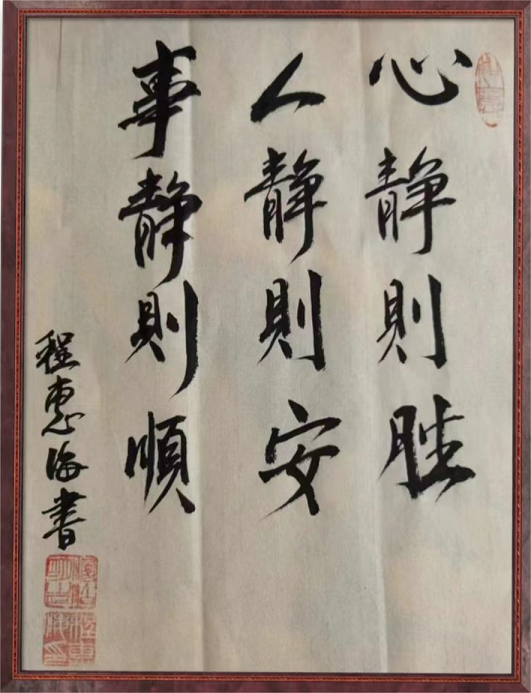 心静則胜
人静則安
事静則順
程惠海書